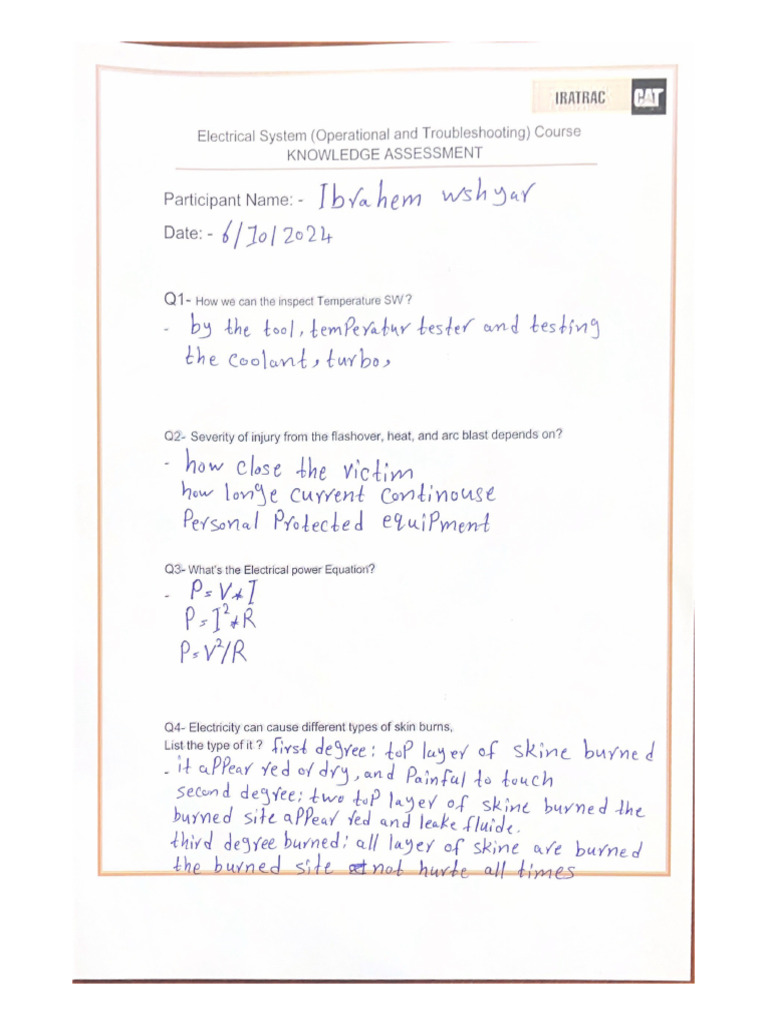 IRATRAC CAT
Electrical System (Operational and Troubleshooting) Course
KNOWLEDGE ASSESSMENT
Participant Name: - Ibrahem wshyar
Date: - 6/10/2024
Q1- How we can the inspect Temperature SW?
- by the tool, temperatur tester and testing
the coolant, turbo,
Q2- Severity of injury from the flashover, heat, and arc blast depends on?
- how close the victim
how longe current continouse
Personal Protected equipment
Q3- What's the Electrical power Equation?
- P=V*I
P=I²*R
P=V²/R
Q4- Electricity can cause different types of skin burns,
List the type of it ? first degree: top layer of skine burned
- it appear red or dry, and Painful to touch
second degree: two top layer of skine burned the
burned site appear red and leake fluide.
third degree burned: all layer of skine are burned
the burned site not hurte all times